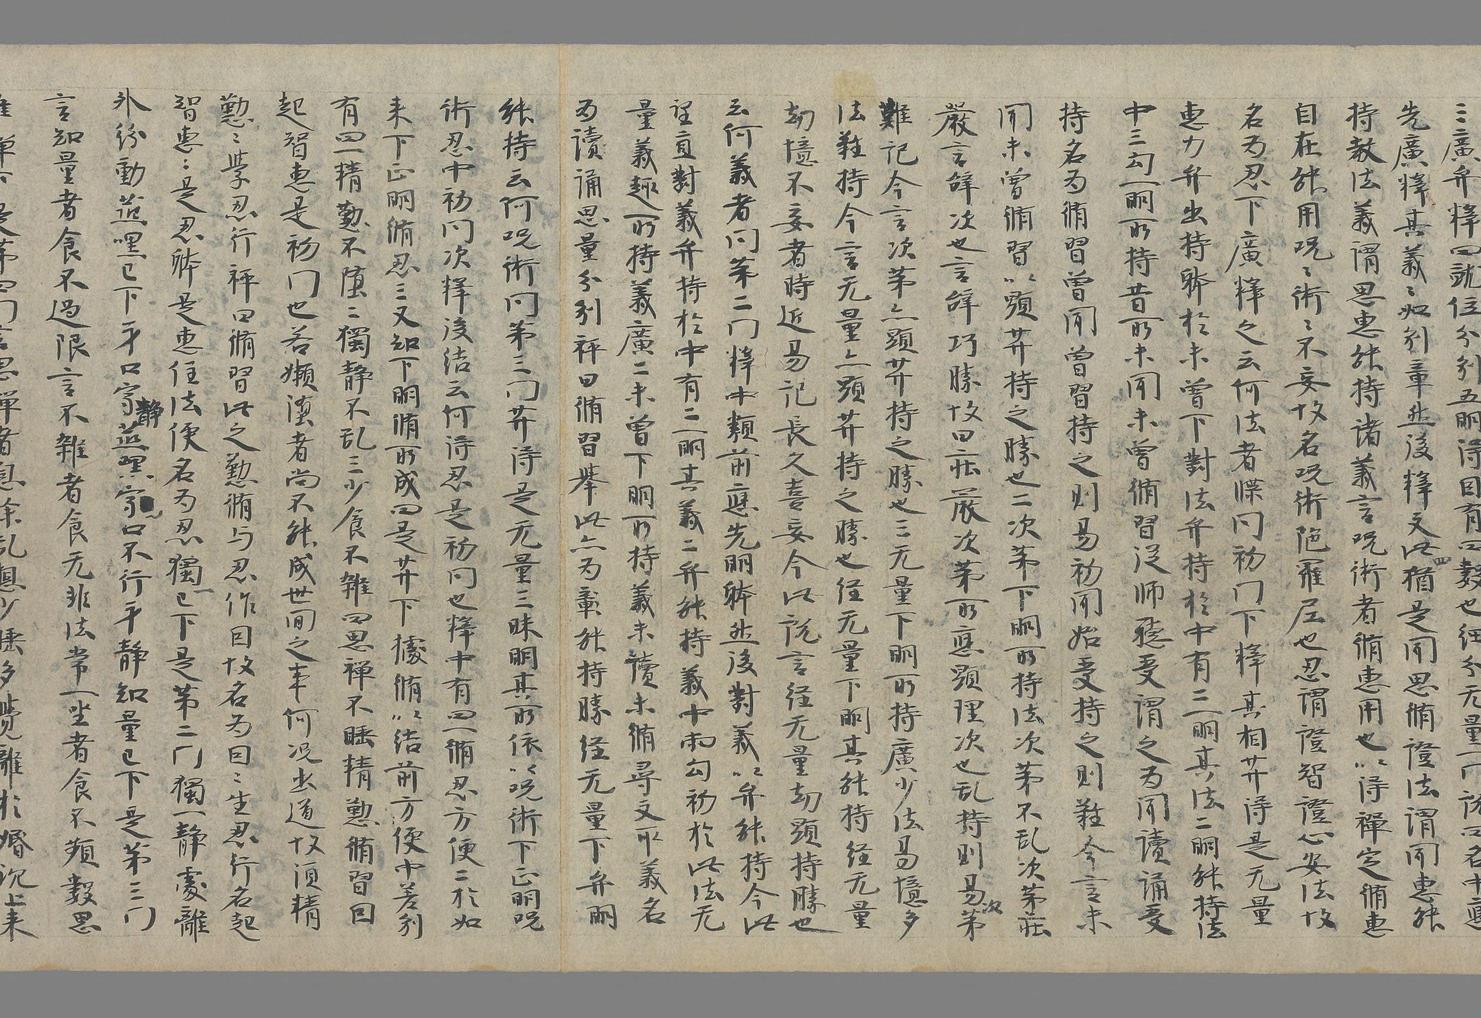 三廣弁釋四就位分別五明得因有四數也細分无量一門說
先廣釋其義二如別章然後釋文此四猶是聞思脩證法謂聞惠能
持教法義謂思惠能持諸義言呪術者脩惠用也以得禪定脩惠
自在能用呪〻術〻不妄故名呪術陁羅尼也忍謂證智證心安法故
名为忍下廣釋之云何法者牒問初門下釋其相菩得是无量
惠力弁出持躰於未曾下對法弁持於中有二一明其法二明能持法
中三句一明所持昔所未聞未曾脩習從師聽受謂之为聞讀誦受
持名为脩習曾聞曾習持之則易初聞始受持之則難今言未
聞未曾脩習以顯菩持之勝也二次第下明所持法次第不乱次第莊
嚴言辞次也言辞巧勝故曰莊嚴次第所應顯理次也乱持則易次第
難記今言次第亦顯菩持之勝也三无量下明所持廣少法易憶多
法難持今言无量亦顯菩持之勝也經无量下明其能持經无量
劫憶不妄者時近易記長久喜妄今此說言經无量劫顯持勝也
云何義者問第二門釋中類前應先明躰然後對義以弁能持今此
望直對義弁持於中有二一明其義二弁能持義中兩句初於此法无
量義趣所持義廣二未曾下明所持義未讀未脩尋文取義名
为讀誦思量分別秤曰脩習舉此亦为彰能持勝經无量下弁明
能持云何呪術問第三門菩得是无量三昧明其所依以呪術下正明呪
術忍中初問次釋後結云何得忍是初問也釋中有四一脩忍方便二於如
来下正明脩忍三又知下明脩所成四是菩下據脩以結前方便中差別
有四一精懃不墮二獨静不乱三少食不雜四思禪不睡精懃脩習因
起智惠是初門也若嬾墮者尚不能成世間之事何況出道故須精
懃〻學忍行秤曰脩習此之懃脩与忍作因故名为因〻生忍行名起
智惠〻是忍躰是惠住法便名为忍獨一已下是第二門獨一静處離
外紛動
言知量者食不過限言不雜者食无非法常一坐者食不頻數思